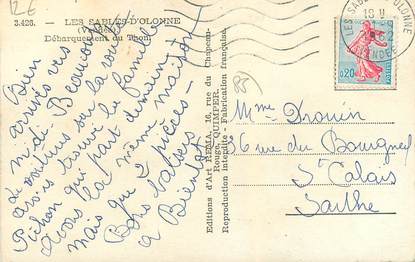 12€
3.426. - LES SABLES-D'OLONNE
(Vendée)
Débarquement du Thon
Bien
arrivés vers
midi. Beaucoup
de voitures sur la route
avons trouvé la famille
Pichon qui part demain
avons la même maison
mais que 2 pièces -
Bons baisers
à Bientôt
Editions d'Art REMA, 16, rue du Chapeau-
Rouge, QUIMPER. - Fabrication française.
Reproduction interdite
85
LES SABLES D'OLONNE
18 H
VENDÉE
0,20
Mme Drouin
26 rue du Bourgneuf
St Calais
Sarthe